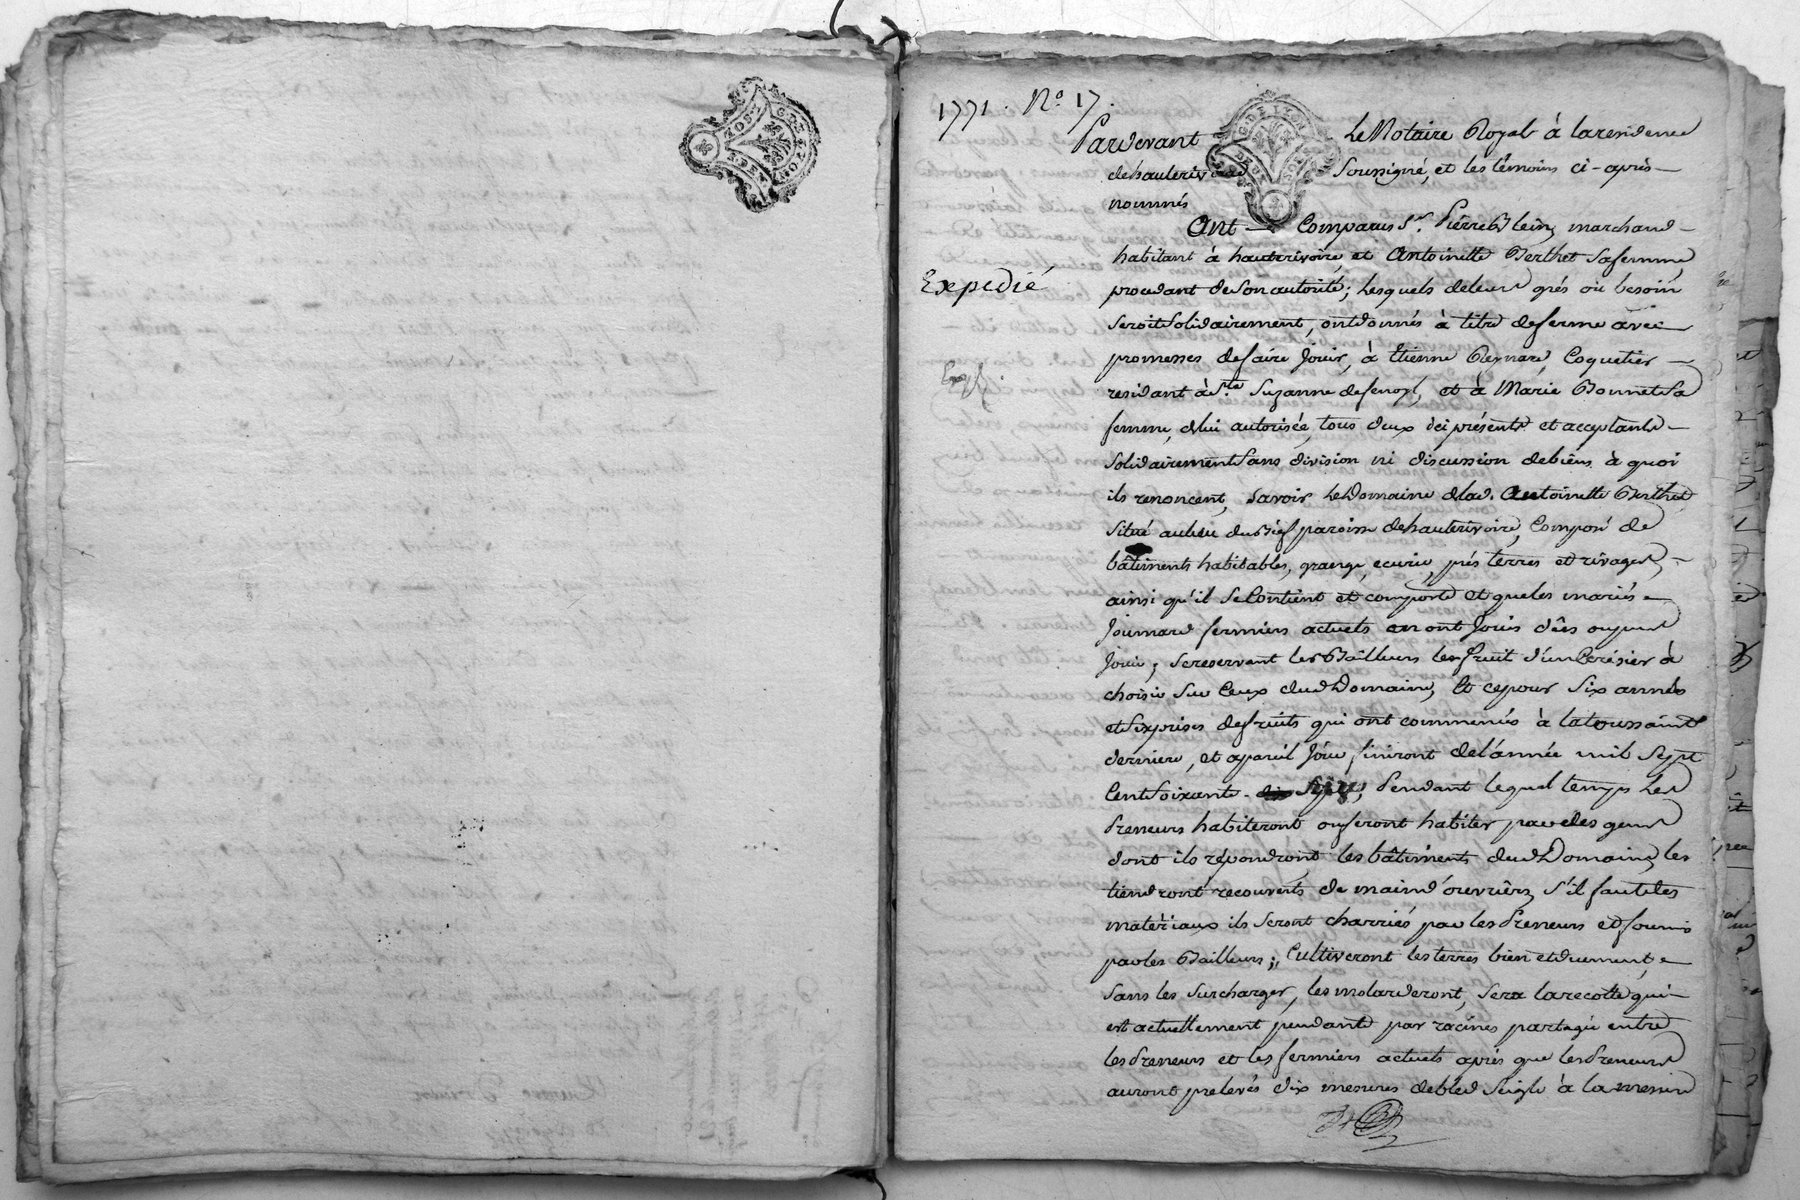 1771. No. 17.
Pardevant Le Notaire Royal à la residence
de hauterivoire Soussigné, et les témoins ci-après
nommés
Ont Comparus Sr. Pierre Blein marchand
habitant à hauterivoire, et Antoinette Berthet Sa femme,
procedant de Son autorité; Lesquels de leurs grés où besoin
Seroit Solidairement, ont donnés à titre de ferme avec
promesses de faire Jouir, à Etienne Reynard, Coquetier
residant à Ste. Suzanne et à Marie Bonnet Sa
femme, de lui autorisée, tous deux ici présents et acceptants
Solidairement Sans division ni discussion de biens à quoi
ils renoncent, Savoir Le Domaine de lad. Antoinette Berthet
Situé au lieu du Bief paroisse de hauterivoire, Composé de
bâtiments habitables, grange, ecurie, prés terres et rivages,
ainsi qu'il Se Contient et comporte et que les mariés
Joumard fermiers actuels en ont Jouis dûs ou pus
Jouir; Se reservant les Bailleurs les fruit d'un Cerésier à
choisir Sur Ceux dud. Domaine, Et ce pour Six années
et Six prises de fruits qui ont commencés à la toussaint
derniere, et à pareil Jour finiront de l'année mil Sept
Cent Soixante Pendant lequel temps Les
Preneurs habiteront ou feront habiter par des gens
dont ils répondront les bâtiments dud. Domaine, les
tiendront recouverts de main d'ouvriers S'il faut des
matériaux ils Seront charriés par les Preneurs et fournis
par les Bailleurs; Cultiveront les terres bien et duement,
Sans les Surcharger, Sera la recolte qui
est actuellement pendante par racines partagée entre
les Preneurs et les fermiers actuels après que les Preneurs
auront prelevés dix mesures de bled Seigle à la mesure
Expedié
G DE LYON
DEUX SOLS
G DE LYON
DEUX SOLS